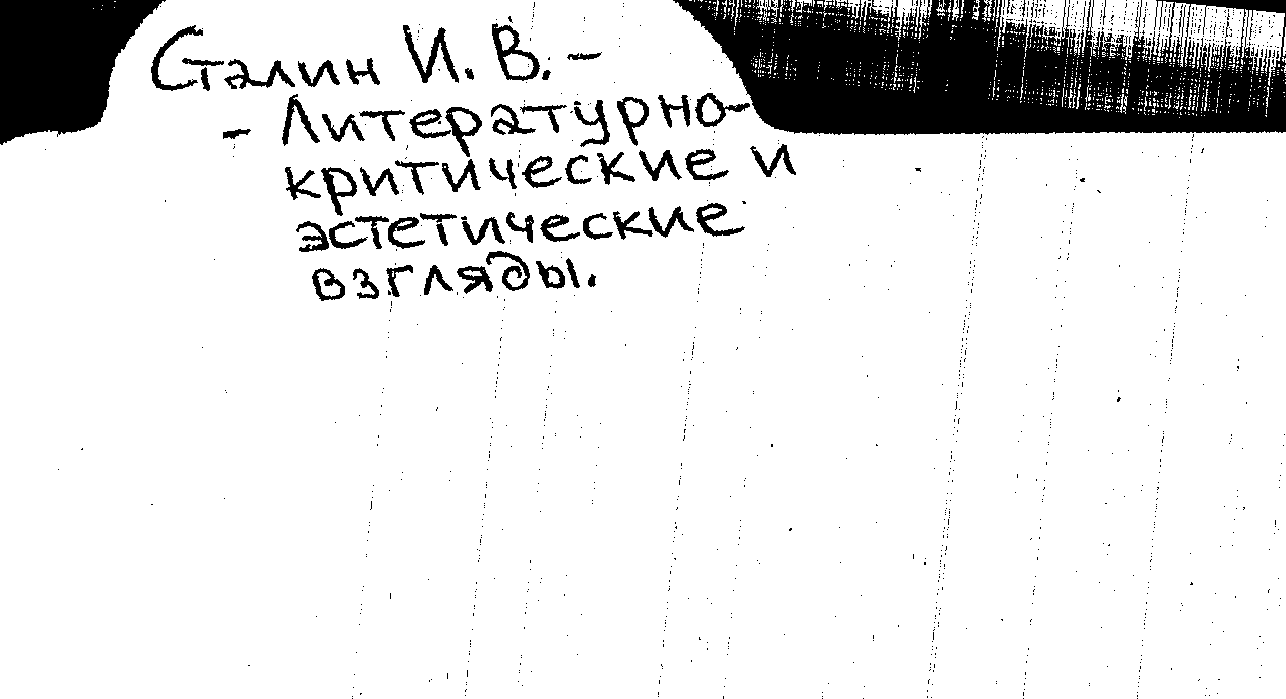 Сталин И. В. –
- Литературно-
критические и
эстетические
взгляды.